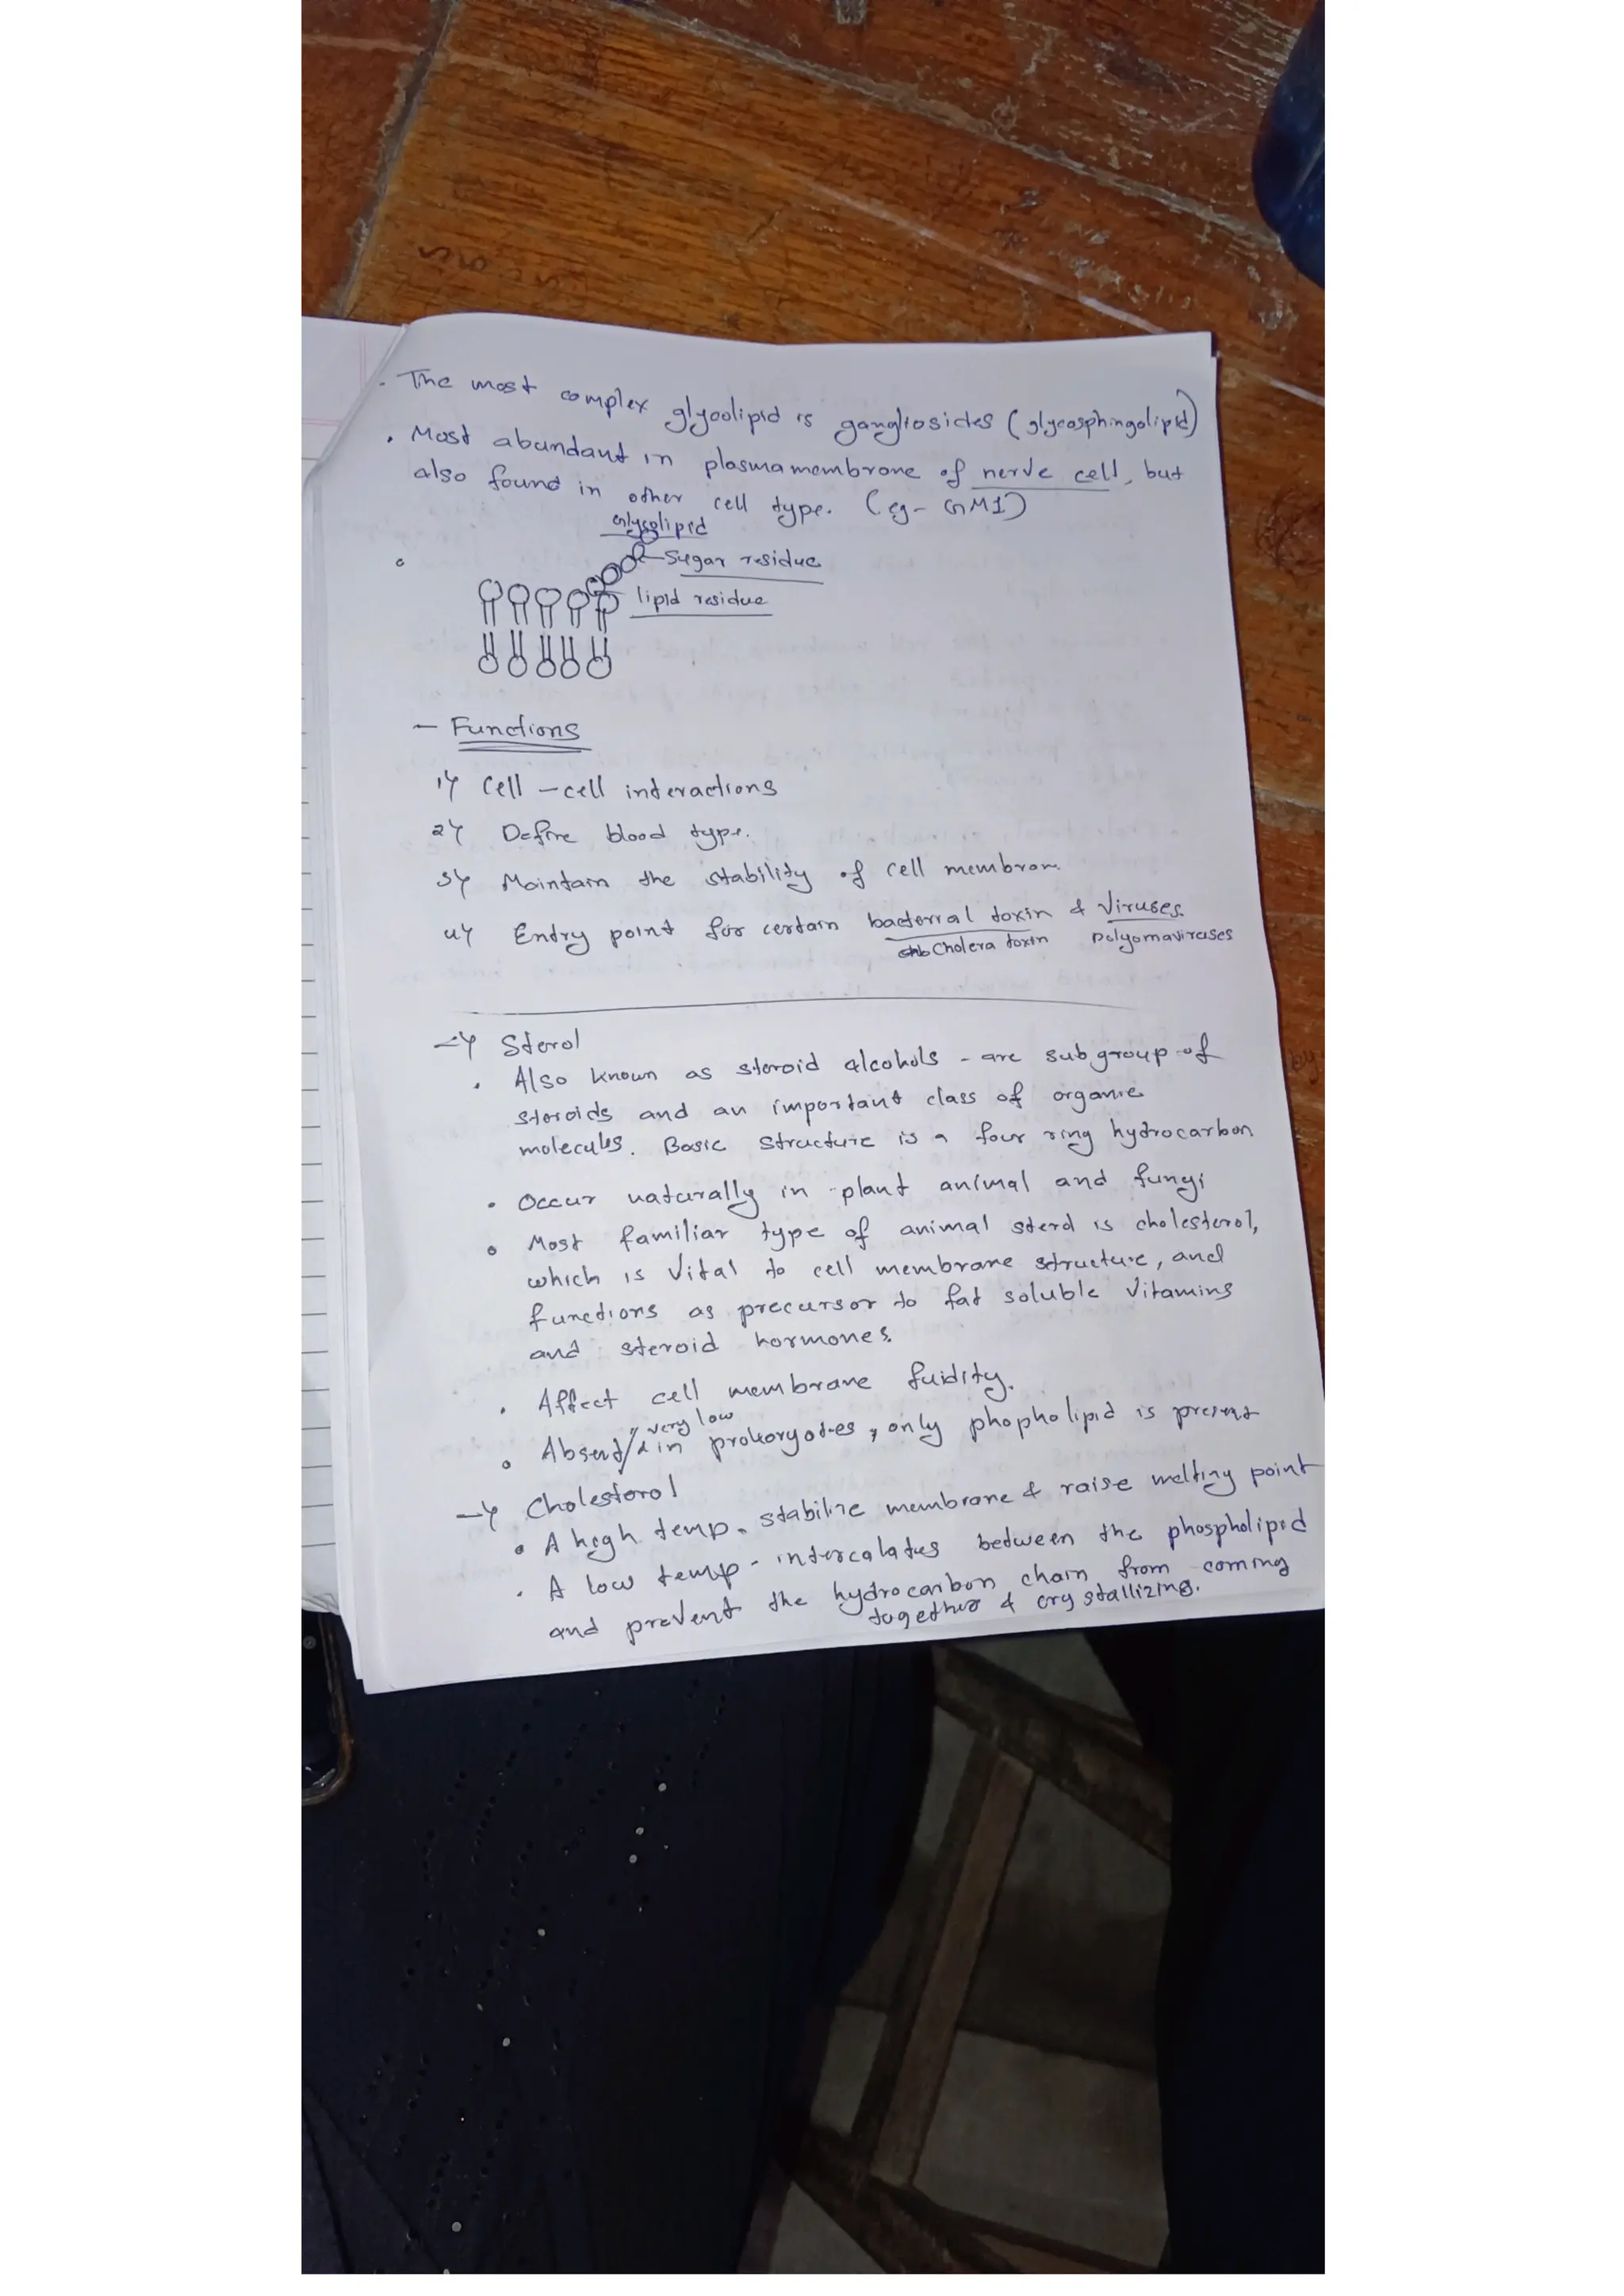 . The most complex glycolipid is gangliosides (glycosphingolipid)
. Most abundant in plasmamembrane of nerve cell, but
also found in other cell type. (eg- GM1)
Glycolipid
Sugar residue
lipid residue
- Functions
1) Cell - cell interactions
2) Define blood type.
3) Maintain the stability of cell membran.
4) Entry point for certain bacterial toxin & viruses.
Cholera toxin polyomaviruses
-> Sterol
. Also known as steroid alcohols - are subgroup of
steroids and an important class of organic
molecules. Basic structure is a four ring hydrocarbon
. Occur naturally in plant animal and fungi
. Most familiar type of animal sterol is cholesterol,
which is vital to cell membrane structure, and
functions as precursor to fat soluble vitamins
and steroid hormones.
. Affect cell membrane fuidity.
very low
. Absent/ in prokaryotes, only phopholipid is present
-> Cholesterol
. A high temp. stabilize membrane & raise melting point
. A low temp - intercalates between the phospholipid
and prevent the hydrocarbon chain from coming
together & crystallizing.